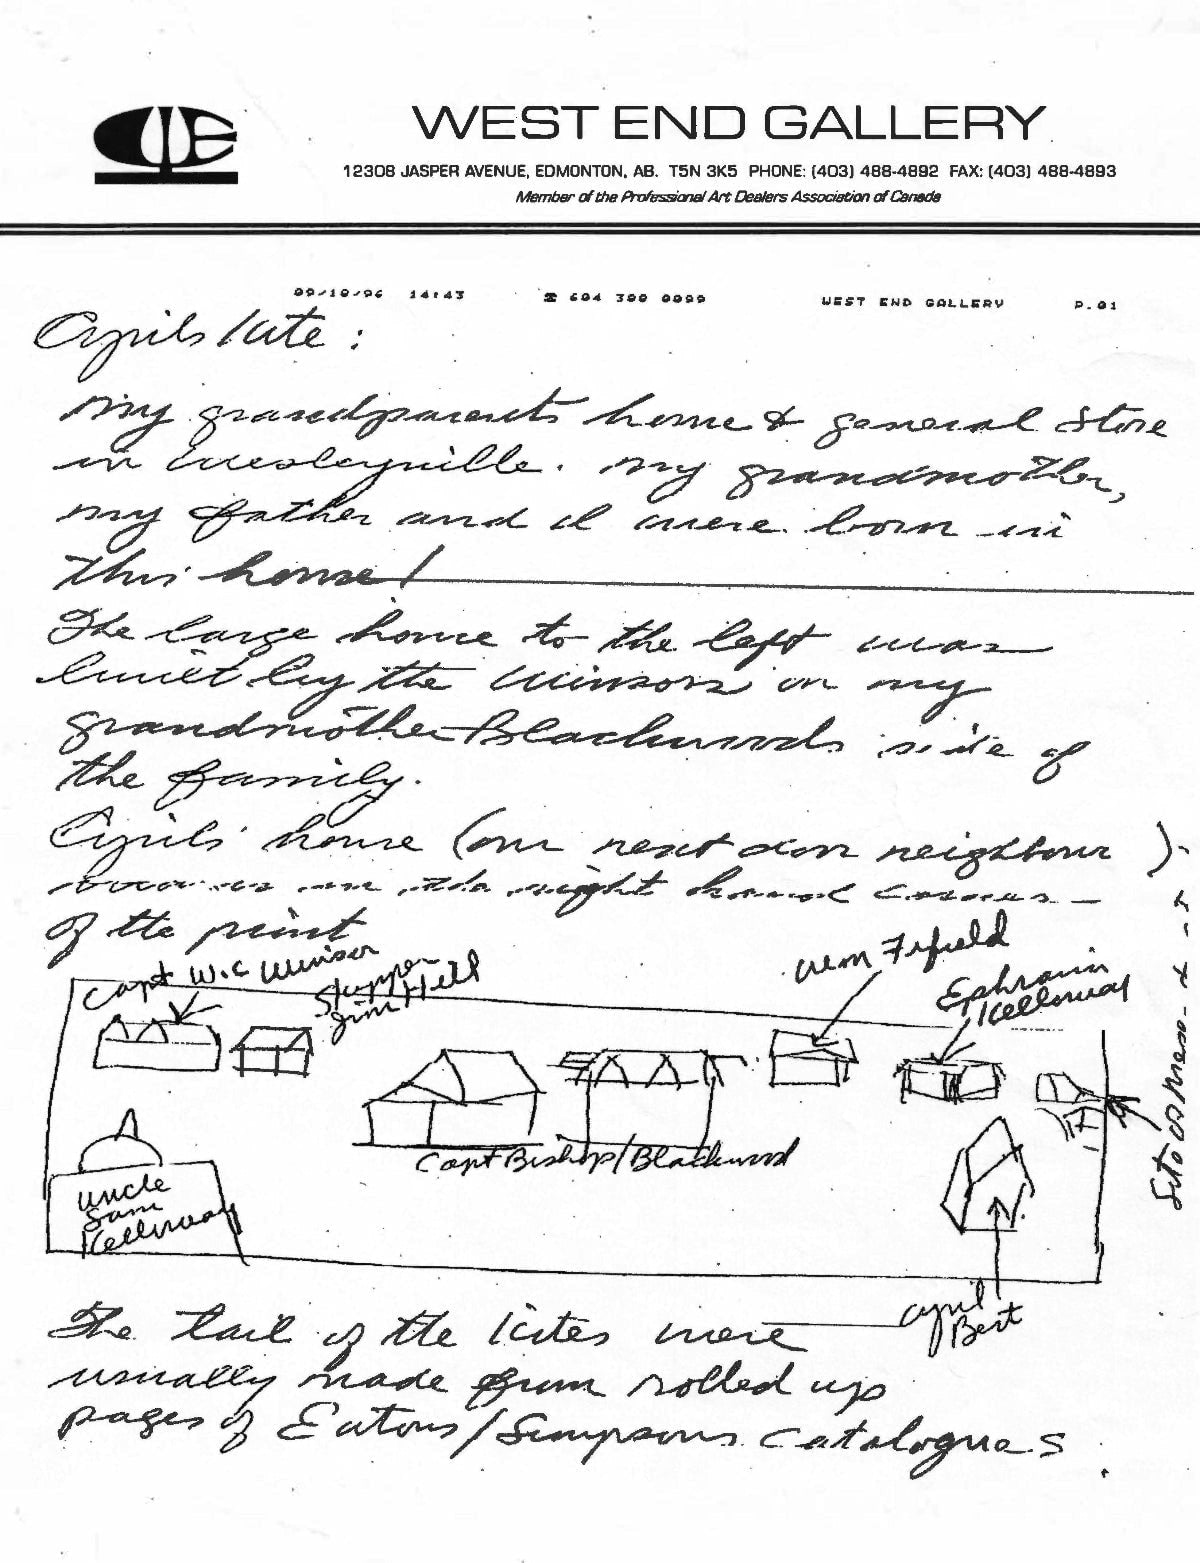 WEST END GALLERY
12308 JASPER AVENUE, EDMONTON, AB. T5N 3K5 PHONE: (403) 488-4892 FAX: (403) 488-4893
Member of the Professional Art Dealers Association of Canada
09/10/96 14:43 ☎ 604 388 0099 WEST END GALLERY P.01
Cyrils Kite:
My grandparents home & general store
in Wesleyville. My grandmother,
my father and I were born in
this house!
The large house to the left was
built by the Winsors on my
grandmother Blackwoods side of
the family.
Cyrils' house (our next door neighbour).
is in the right hand corner
of the print
Capt W.C Winsor
Skipper
Jim Hill
Wm Fifield
Ephraim
Kelloway
Capt Bishop/Blackwood
Uncle
Sam
Kelloway
Cyril
Best
The tail of the kites were
usually made from rolled up
pages of Eatons/Simpsons catalogues